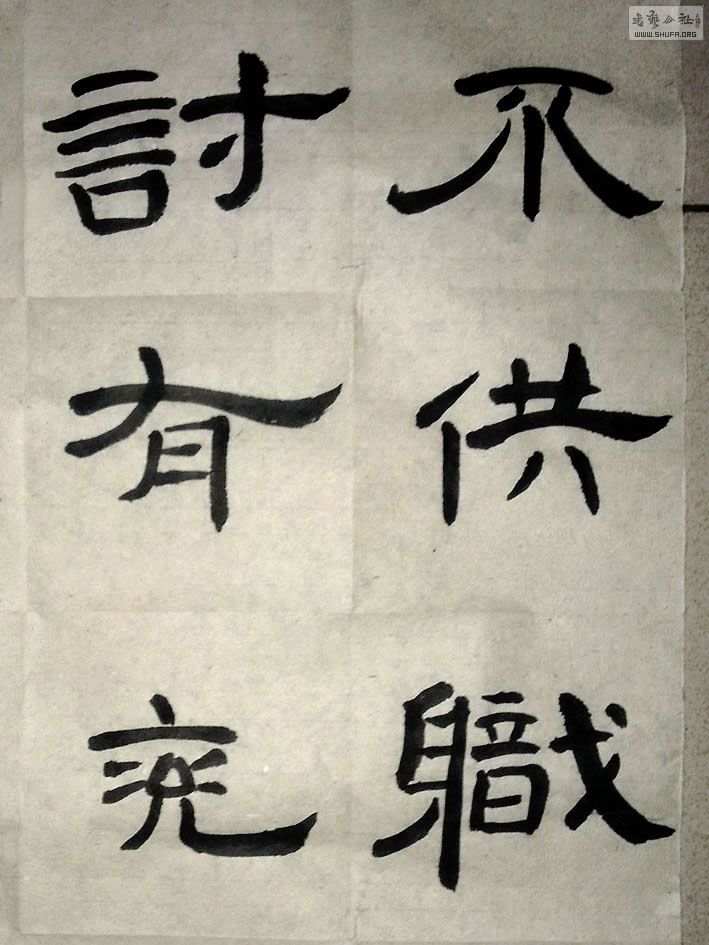 不供職
討有兗
書藝公社
WWW.SHUFA.ORG